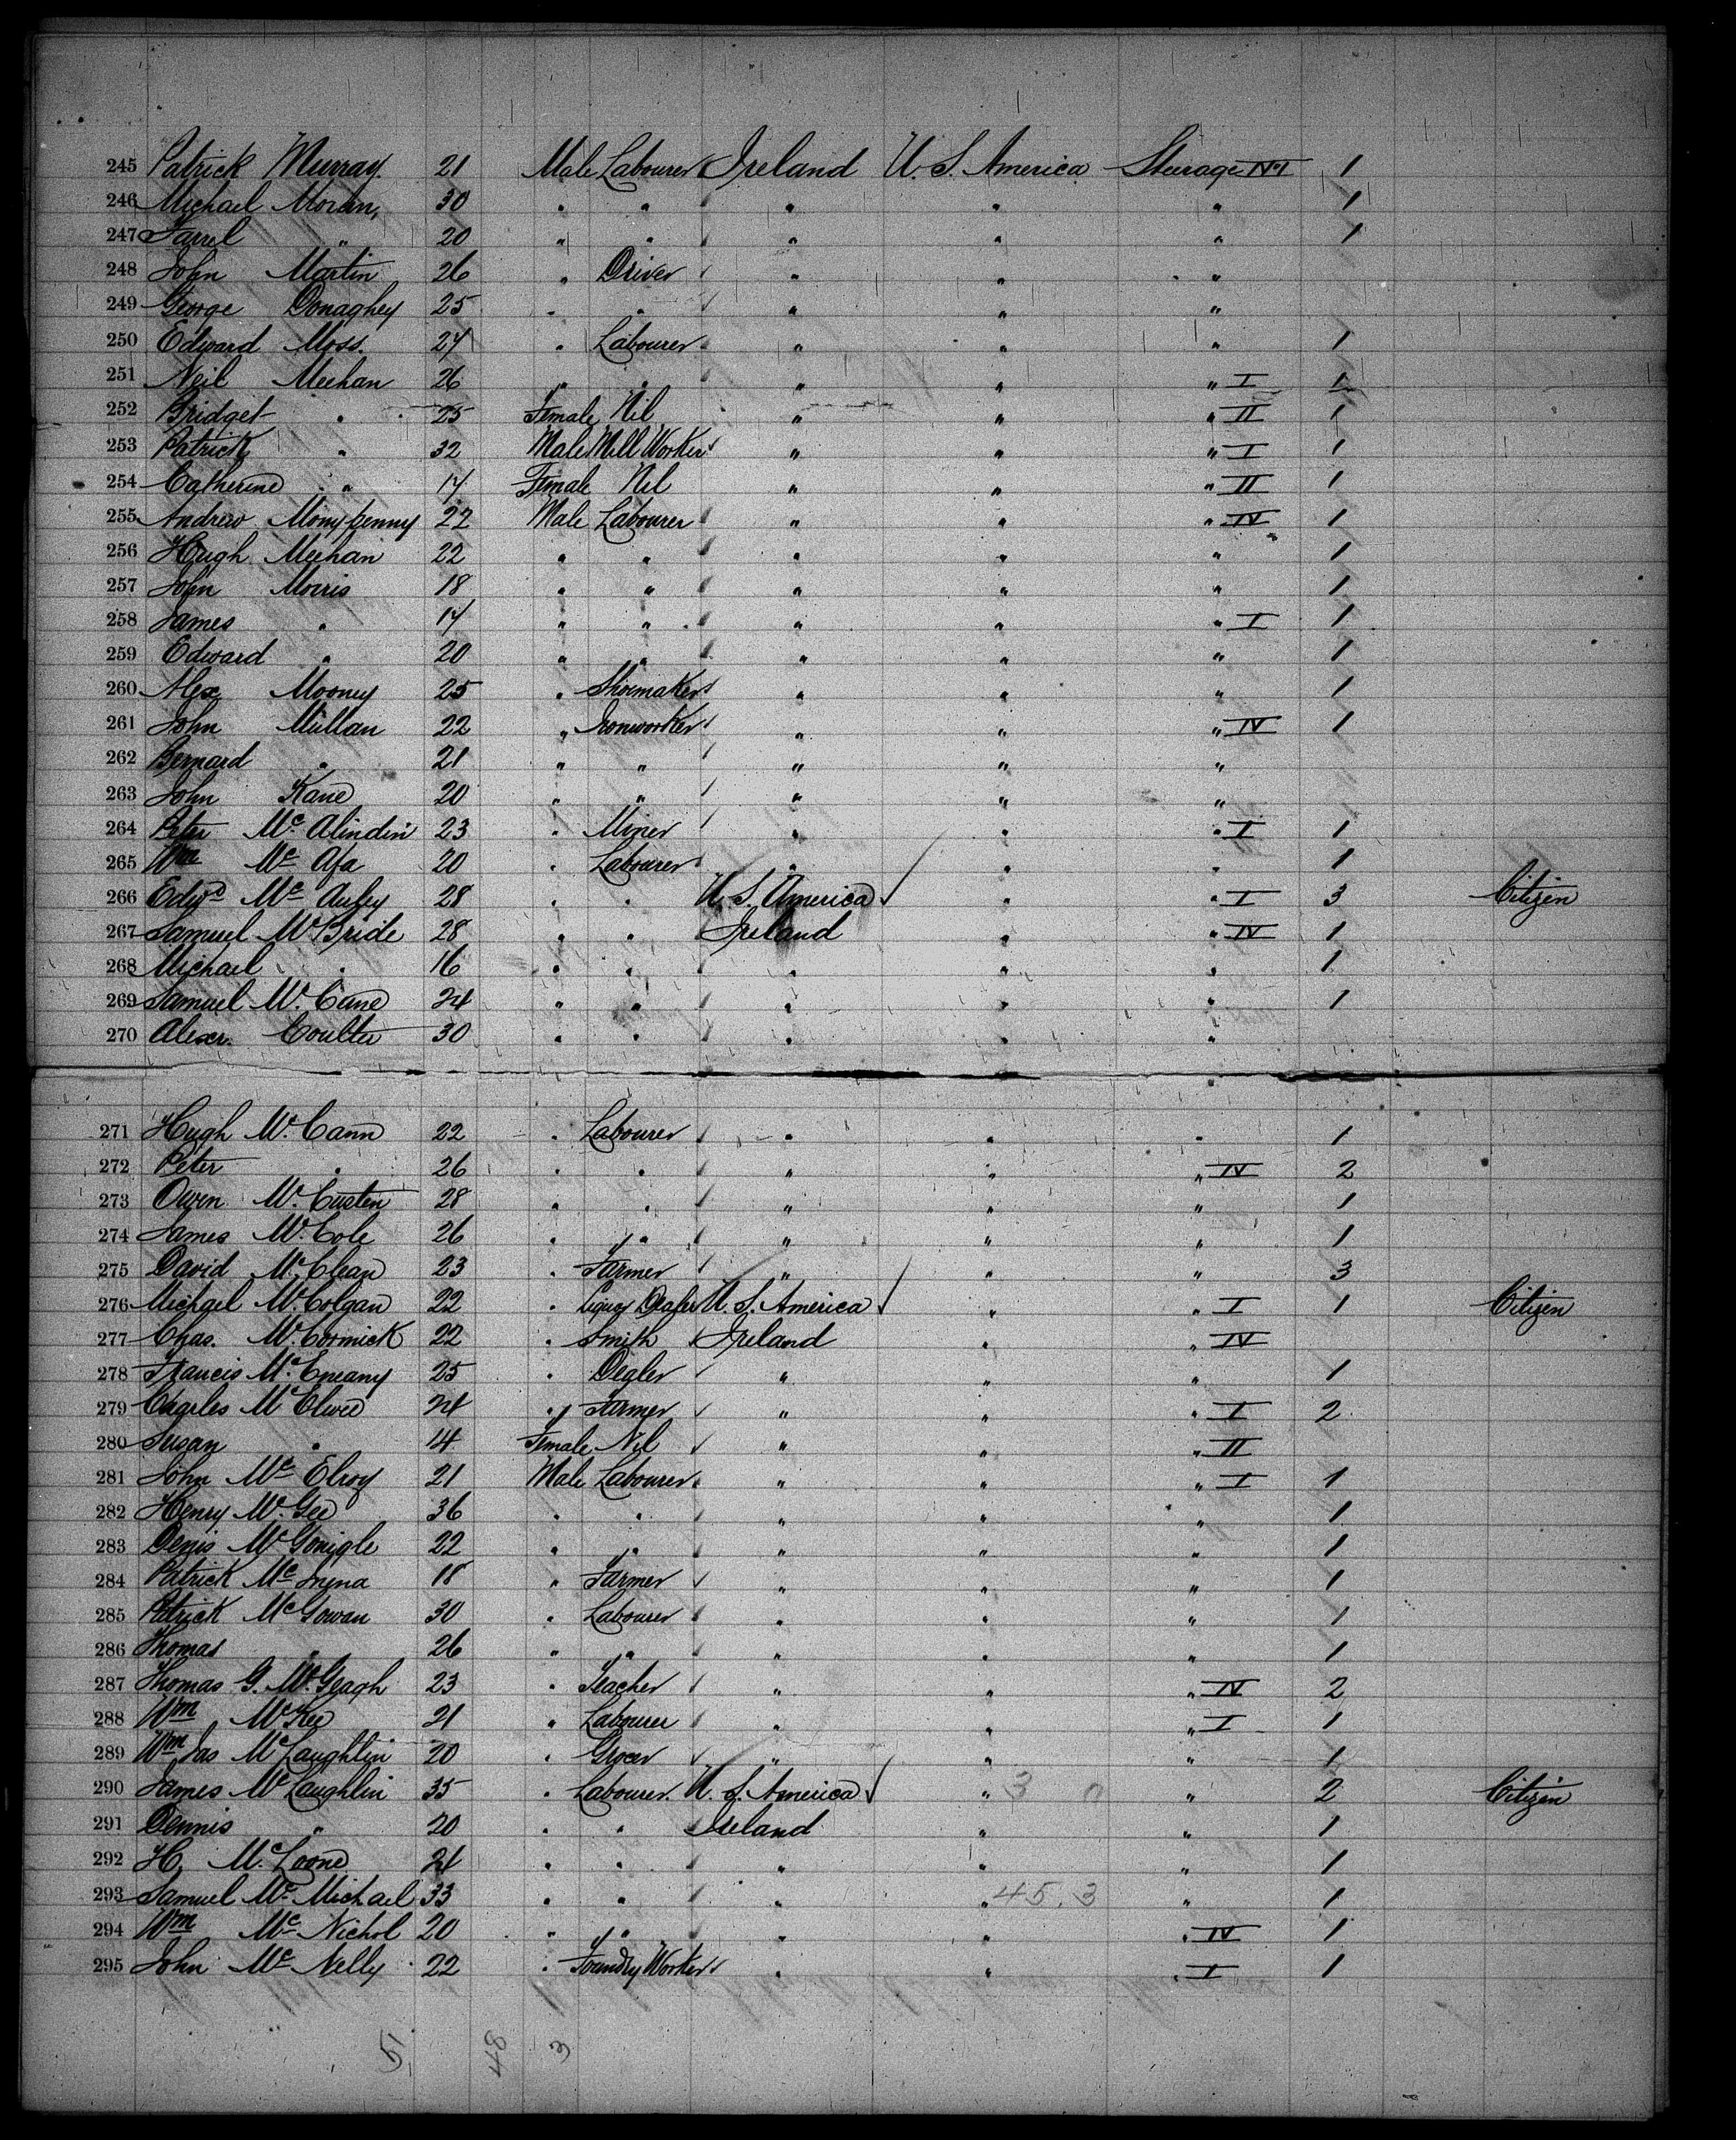 245 Patrick Murray. 21 Male Labourer Ireland U. S. America Steerage No 1 1
246 Michael Moran, 30 " " " " " 1
247 Farrel " 20 " " " " " 1
248 John Martin 26 " Driver " " "
249 George Donaghey 25 " " " " "
250 Edward Moss. 24 " Labourer " " " 1
251 Neil Meehan 26 " " " " " I 1
252 Bridget " 25 Female Nil " " " II 1
253 Patrick " 32 Male Mill Worker " " " I 1
254 Catherine " 14 Female Nil " " " II 1
255 Andrew Monypenny 22 Male Labourer " " " IV 1
256 Hugh Meehan 22 " " " " " 1
257 John Morris 18 " " " " " 1
258 James " 14 " " " " " I 1
259 Edward " 20 " " " " " 1
260 Alex Mooney 25 " Shoemaker " " " 1
261 John Mullan 22 " Ironworker " " " IV 1
262 Bernard " 21 " " " " "
263 John Kane 20 " " " " "
264 Peter Mc Alindin 23 " Miner " " " I 1
265 Wm Mc Afa 20 " Labourer " " " 1
266 Edwd Mc Auley 28 " " U. S. America " " I 3 Citizen
267 Samuel McBride 28 " " Ireland " " IV 1
268 Michael " 16 " " " " " 1
269 Samuel Mc Cune 24 " " " " " 1
270 Alexr. Coulter 30 " " " " "
271 Hugh McCann 22 " Labourer " " " 1
272 Peter " 26 " " " " " IV 2
273 Owen McCusten 28 " " " " " 1
274 James McCole 26 " " " " " 1
275 David McClean 23 " Farmer " " " 3
276 Michael McColgan 22 " Liquor Dealer U. S. America " " I 1 Citizen
277 Chas. McCormick 22 " Smith Ireland " " IV
278 Francis McEneany 25 " Dealer " " " 1
279 Charles McElwee 24 " Farmer " " " I 2
280 Susan " 14 Female Nil " " " II
281 John Mc Elroy 21 Male Labourer " " " I 1
282 Henry McGee 36 " " " " " 1
283 Denis McGonigle 22 " " " " " 1
284 Patrick Mc 18 " Farmer " " " 1
285 Patrick McGowan 30 " Labourer " " " 1
286 Thomas " 26 " " " " " 1
287 Thomas G. McGeagh 23 " Teacher " " " IV 2
288 Wm McKee 21 " Labourer " " " I 1
289 Wm Jas McLaughlin 20 " Grocer " " " 1
290 James McLaughlin 35 " Labourer U. S. America " 3 0 " 2 Citizen
291 Dennis " 20 " " Ireland " " 1
292 H. McLoone 24 " " " " " 1
293 Samuel Mc Michael 33 " " " " 45.3 " 1
294 Wm Mc Nichol 20 " " " " " IV 1
295 John Mc Nelly 22 " Foundry Worker " " " I 1
51 48 3